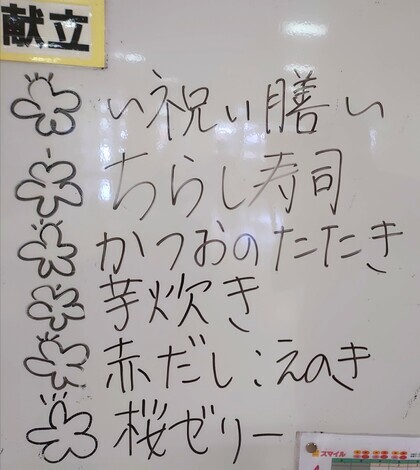 献立
い祝い膳い
ちらし寿司
かつおのたたき
芋炊き
赤だし:えのき
桜ゼリー
スマイル